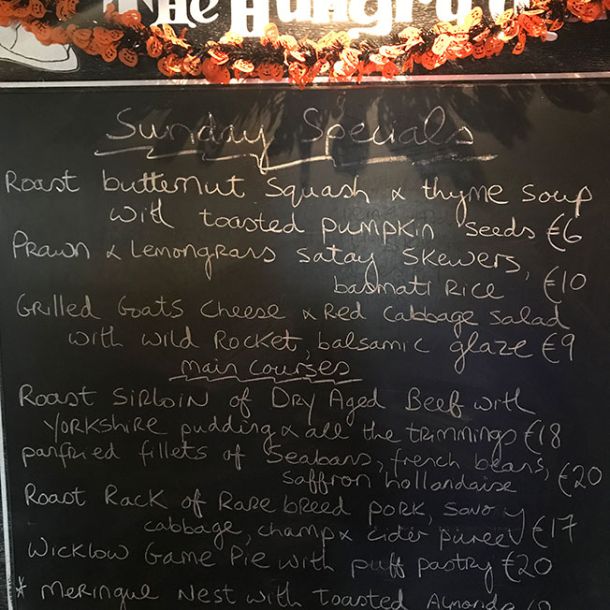 The Hungry
Sunday Specials
Roast butternut squash & thyme soup
with toasted pumpkin seeds €6
Prawn & Lemongrass satay skewers,
basmati rice €10
Grilled Goats Cheese & Red Cabbage Salad
with wild Rocket, balsamic glaze €9
main courses
Roast Sirloin of Dry Aged Beef with
Yorkshire pudding & all the trimmings €18
panfried fillets of Seabass, french beans,
saffron hollandaise €20
Roast Rack of Rare breed pork, savoy
cabbage, champ & cider puree €17
Wicklow Game Pie with puff pastry €20
* Meringue Nest with toasted Almonds